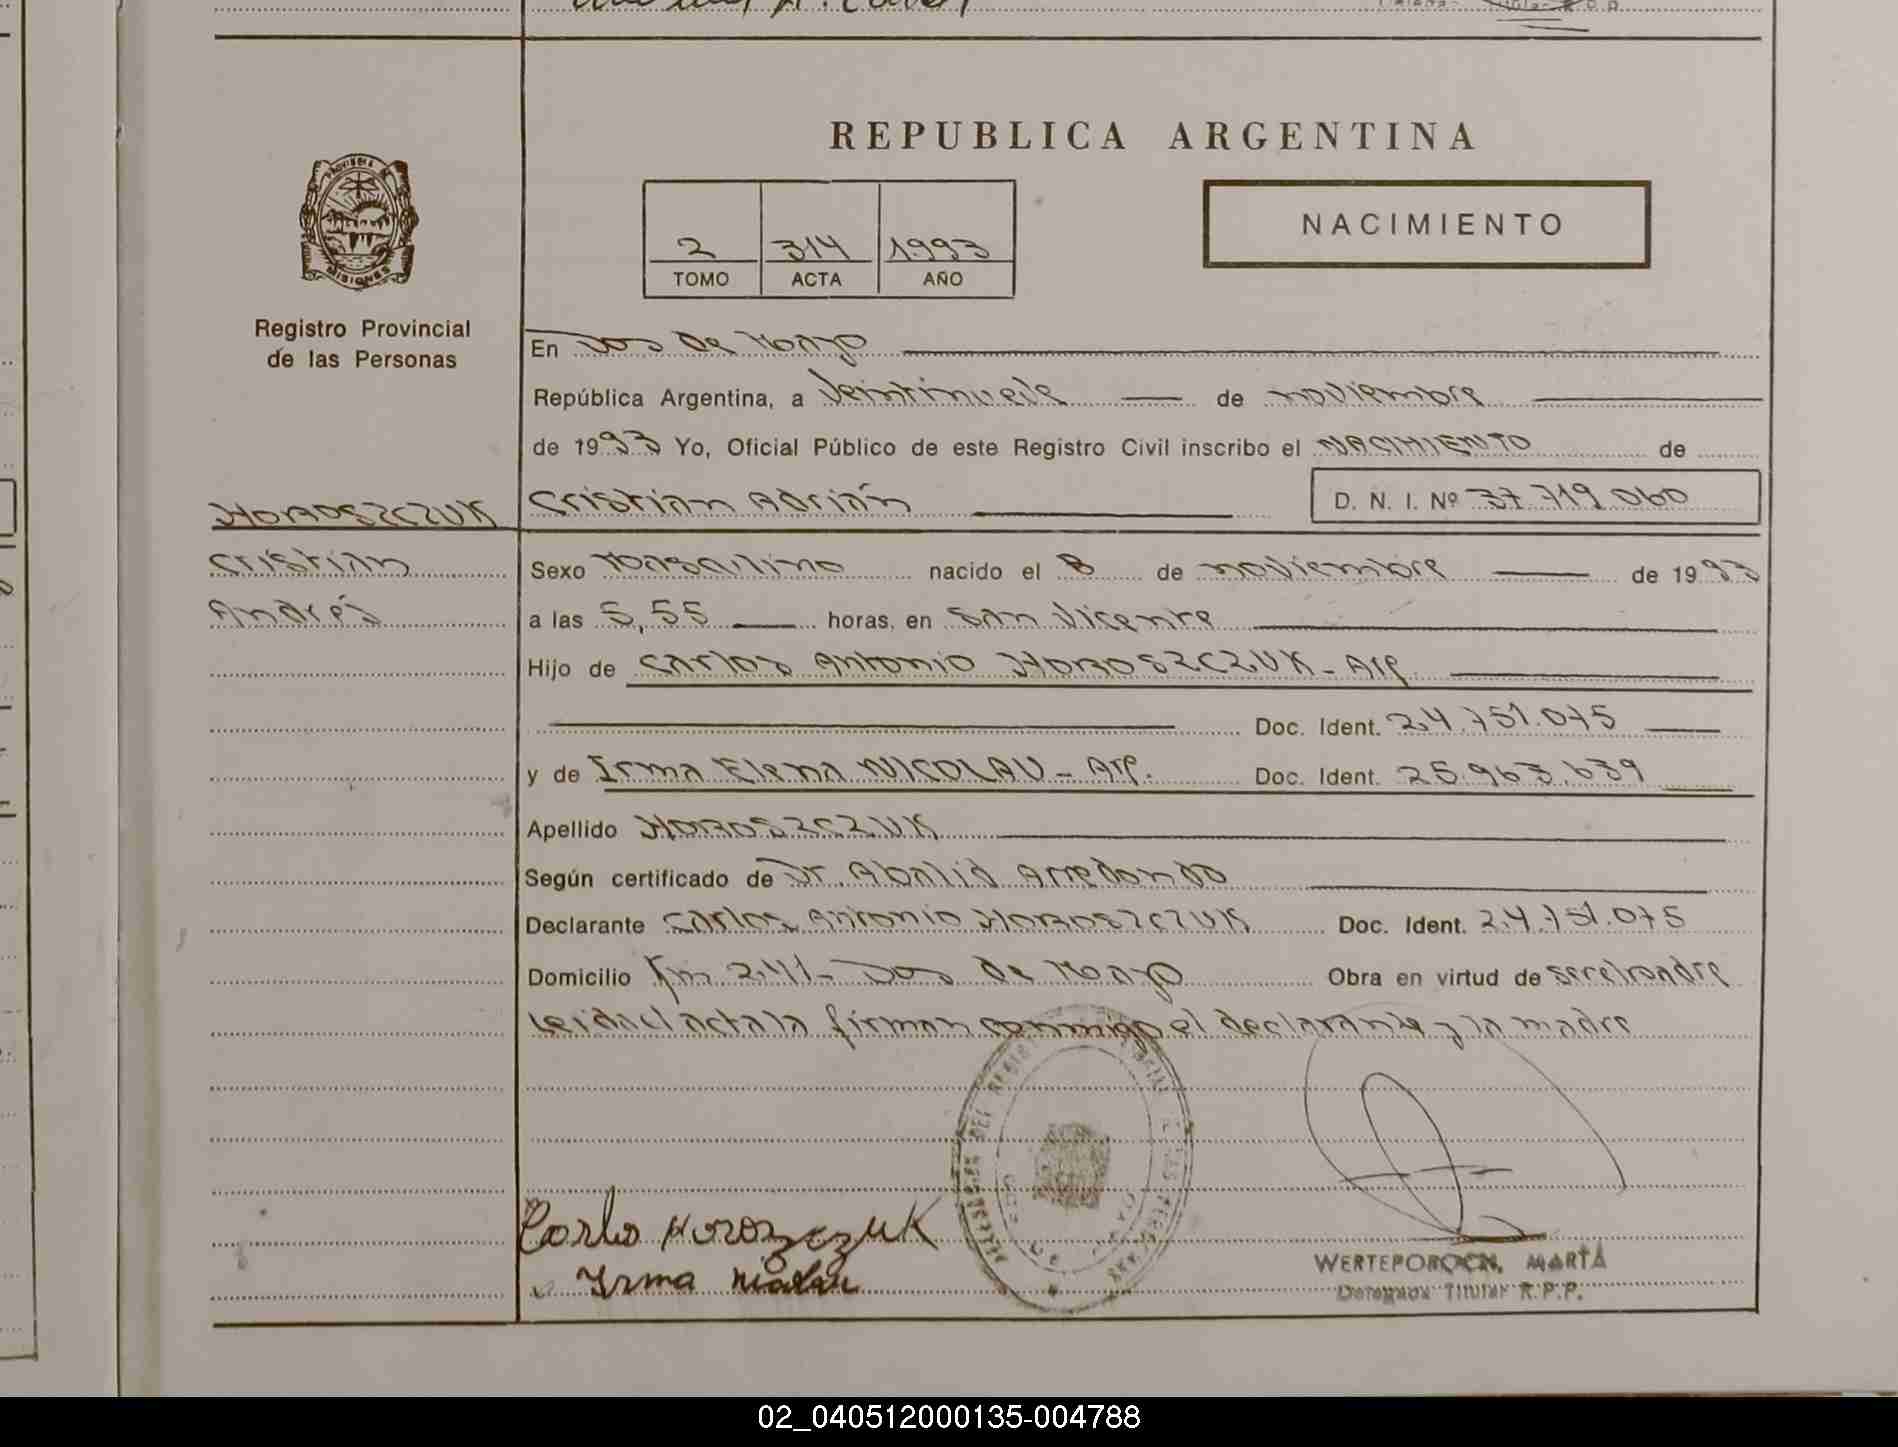 REPUBLICA ARGENTINA
PROVINCIA DE
MISIONES
Registro Provincial
de las Personas
2 314 1993
TOMO ACTA AÑO
NACIMIENTO
En Dos de Mayo
República Argentina, a Veintinueve de noviembre
de 1993 Yo, Oficial Público de este Registro Civil inscribo el NACIMIENTO de
HOROSZCZUK
Cristian Adrián D. N. I. Nº 37.719.060
Cristian
Andrés
Sexo Masculino nacido el 8 de noviembre de 1993
a las 5,55 horas, en San Vicente
Hijo de Carlos Antonio HOROSZCZUK - Arg.
Doc. Ident. 24.751.075
y de Irma Elena NICOLAU - Arg. Doc. Ident. 25.963.639
Apellido HOROSZCZUK
Según certificado de Dr. Abalid Arredondo
Declarante Carlos Antonio HOROSZCZUK Doc. Ident. 24.751.075
Domicilio Km 241 - Dos de Mayo Obra en virtud de ser el padre
Leida el acta la firman conmigo el declarante y la madre
Carlo Horoszczuk
Irma
WERTEPOROCH, MARTA
Delegada Titular R.P.P.
02_040512000135-004788